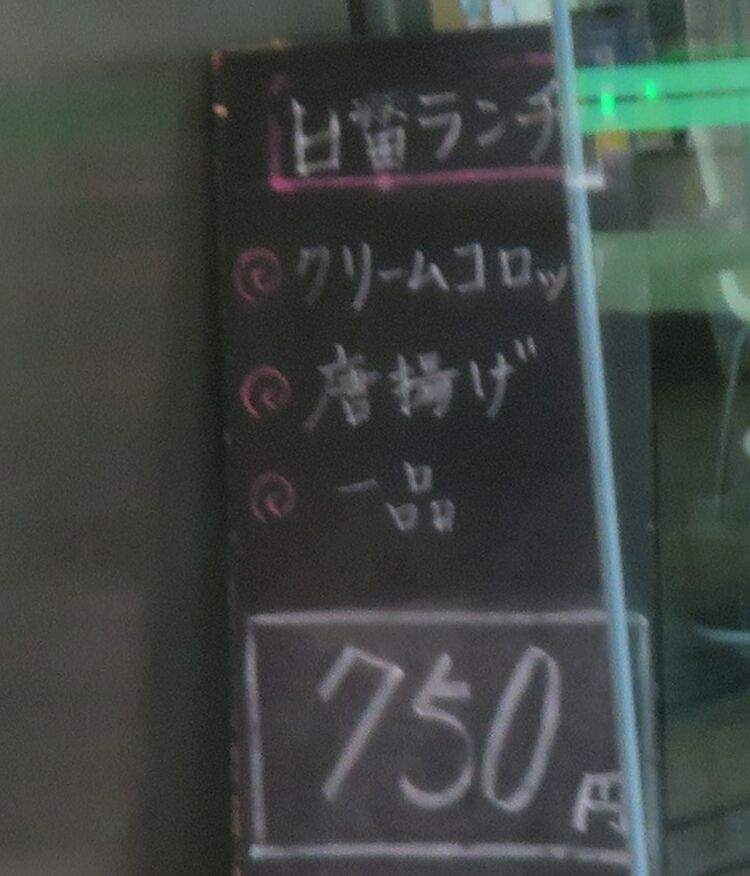 日替ランチ
クリームコロッ
唐揚げ
一品
750円